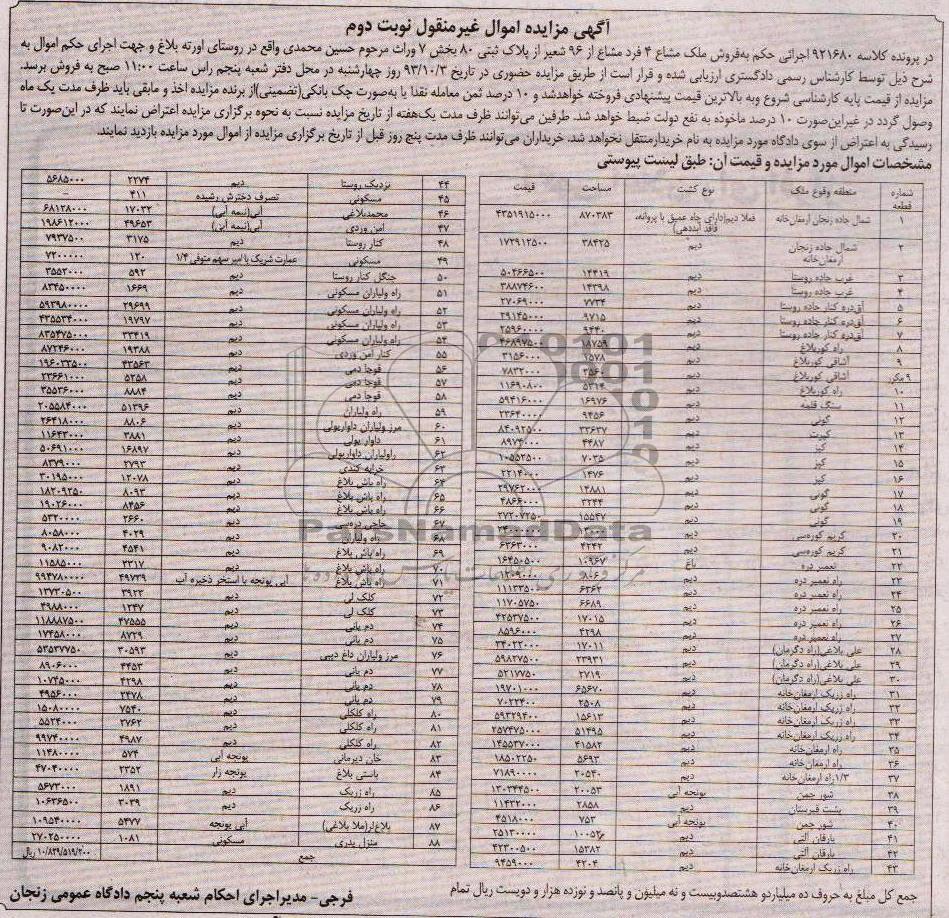 آگهی مزایده اموال غیرمنقول نوبت دوم
در پرونده کلاسه ۹۲۱۶۸۰ اجرائی حکم به‌فروش ملک مشاع ۴ فرد مشاع از ۹۶ شعیر از پلاک ثبتی ۸۰ بخش ۷ وراث مرحوم حسین محمدی واقع در روستای اورته بلاغ و جهت اجرای حکم اموال به
شرح ذیل توسط کارشناس رسمی دادگستری ارزیابی شده و قرار است از طریق مزایده حضوری در تاریخ ۹۳/۱۰/۳ روز چهارشنبه در محل دفتر شعبه پنجم راس ساعت ۱۱:۰۰ صبح به فروش برسد.
مزایده از قیمت پایه کارشناسی شروع وبه بالاترین قیمت پیشنهادی فروخته خواهدشد و ۱۰ درصد ثمن معامله نقدا یا به‌صورت چک بانکی(تضمینی)از برنده مزایده اخذ و مابقی باید ظرف مدت یک ماه
وصول گردد در غیراین‌صورت ۱۰ درصد ماخوذه به نفع دولت ضبط خواهد شد. طرفین می‌توانند ظرف مدت یک‌هفته از تاریخ مزایده نسبت به نحوه برگزاری مزایده اعتراض نمایند که در این‌صورت تا
رسیدگی به اعتراض از سوی دادگاه مورد مزایده به نام خریدارمنتقل نخواهد شد. خریداران می‌توانند ظرف مدت پنج روز قبل از تاریخ برگزاری مزایده از اموال مورد مزایده بازدید نمایند.
مشخصات اموال مورد مزایده و قیمت آن: طبق لیست پیوستی
شماره قطعه منطقه وقوع ملک نوع کشت مساحت قیمت
۱ شمال جاده زنجان ارمغان‌خانه فعلا دیم(دارای چاه عمیق با پروانه، فاقد آبدهی) ۸۷۰۳۸۳ ۴۳۵۱۹۱۵۰۰۰
۲ شمال جاده زنجان ارمغان‌خانه دیم ۳۸۴۲۵ ۱۷۲۹۱۲۵۰۰
۳ غرب جاده روستا دیم ۱۴۴۱۹ ۵۰۴۶۶۵۰۰
۴ غرب جاده روستا دیم ۱۴۳۹۸ ۳۸۸۷۴۶۰۰
۵ آق‌دره کنار جاده روستا دیم ۷۷۳۴ ۲۷۰۶۹۰۰۰
۶ آق‌دره کنار جاده روستا دیم ۹۷۱۵ ۲۹۱۴۵۰۰۰
۷ آق‌دره کنار جاده روستا دیم ۹۴۴۰ ۲۵۹۶۰۰۰۰
۸ راه کوربلاغ دیم ۱۸۷۵۹ ۴۶۸۹۷۵۰۰
۹ آشاقی کوربلاغ دیم ۱۵۷۸ ۳۱۵۶۰۰۰
۹ مکرر آشاقی کوربلاغ دیم ۷۸۳۲۰۰۰
۱۰ راه کوربلاغ دیم ۵۳۱۴ ۱۱۶۹۰۸۰۰
۱۱ سنگ قلمه دیم ۱۶۹۷۶ ۵۹۴۱۶۰۰۰
۱۲ گونی دیم ۹۴۵۶ ۲۳۶۴۰۰۰۰
۱۳ کبریت دیم ۳۳۶۳۷ ۸۴۰۹۲۵۰۰
۱۴ کیز دیم ۴۴۸۷ ۸۹۷۴۰۰۰
۱۵ کیز دیم ۷۰۳۵ ۱۰۵۵۲۵۰۰
۱۶ کیز دیم ۱۴۷۶ ۲۲۱۴۰۰۰
۱۷ گونی دیم ۱۲۸۸۱ ۲۹۷۶۲۰۰۰
۱۸ گونی دیم ۳۲۴۴ ۴۸۶۶۰۰۰
۱۹ گونی دیم ۱۵۵۴۷ ۲۷۲۰۷۲۵۰
۲۰ کریم کوره‌سی دیم
۲۱ کریم کوره‌سی دیم ۴۲۴۲ ۶۳۶۳۰۰۰
۲۲ تعمیر دره باغ ۱۰۹۶۷ ۱۶۴۵۰۵۰۰
۲۳ راه تعمیر دره دیم ۸۰۶ ۱۲۰۹۰۰۰
۲۴ راه تعمیر دره دیم ۶۳۶۲ ۱۱۱۳۳۵۰۰
۲۵ راه تعمیر دره دیم ۶۶۸۹ ۱۱۷۰۵۷۵۰
۲۶ راه تعمیر دره دیم ۱۷۰۱۵ ۴۲۵۳۷۵۰۰
۲۷ راه تعمیر دره دیم ۴۲۹۸ ۸۵۹۶۰۰۰
۲۸ علی بلاغی(راه دگرمان) دیم ۱۷۰۱۱ ۳۴۰۲۲۰۰۰
۲۹ علی بلاغی(راه دگرمان) دیم ۲۳۹۳۱ ۵۹۸۲۷۵۰۰
۳۰ علی بلاغی(راه دگرمان) دیم ۲۷۱۹ ۵۲۱۷۷۵۰
۳۱ راه زریک ارمغان‌خانه دیم ۶۵۶۷۰ ۱۹۷۰۱۰۰۰
۳۲ راه زریک ارمغان‌خانه دیم ۲۵۰۸ ۷۰۲۲۴۰۰
۳۳ راه زریک ارمغان‌خانه دیم ۱۵۶۱۳ ۵۹۳۲۹۴۰۰
۳۴ راه زریک ارمغان‌خانه دیم ۵۱۴۹۵ ۲۵۷۴۷۵۰۰۰
۳۵ راه ارمغان‌خانه دیم ۴۱۵۸۲ ۱۴۵۵۳۷۰۰۰
۳۶ راه ارمغان‌خانه دیم ۵۶۹۳ ۱۸۵۰۲۲۵۰
۳۷ ۱/۳راه ارمغان‌خانه دیم ۲۰۵۴۰ ۷۱۸۹۰۰۰۰
۳۸ شور چمن یونجه آبی ۲۰۰۵۳ ۱۳۰۳۴۴۵۰۰
۳۹ پشت قبرستان دیم ۲۸۵۸ ۱۱۴۳۲۰۰۰
۴۰ شور چمن یونجه آبی ۷۵۳ ۴۵۱۸۰۰۰
۴۱ یارقان آلتی دیم ۱۰۰۵۲ ۲۵۱۳۰۰۰۰
۴۲ یارقان آلتی دیم ۱۵۳۸۲ ۴۲۳۰۰۵۰۰
۴۳ راه زریک ارمغان‌خانه دیم ۴۲۰۴ ۹۴۵۹۰۰۰
۴۴ نزدیک روستا دیم ۲۲۷۴ ۵۶۸۵۰۰۰
۴۵ مسکونی تصرف دخترش رشیده ۴۱۱ –
۴۶ محمدبلاغی آبی(نیمه آبی) ۱۷۰۳۲ ۶۸۱۲۸۰۰۰
۴۷ امن وردی آبی(نیمه آبی) ۴۹۶۵۳ ۱۹۸۶۱۲۰۰۰
۴۸ کنار روستا دیم ۳۱۷۵ ۷۹۳۷۵۰۰
۴۹ مسکونی عمارت شریک با امیر سهم متوفی ۱/۴ ۱۲۰ ۷۲۰۰۰۰۰
۵۰ جنگل کنار روستا دیم ۵۹۲ ۳۵۵۲۰۰۰
۵۱ راه ولیاران مسکونی دیم ۱۶۶۹ ۸۳۴۵۰۰۰
۵۲ راه ولیاران مسکونی دیم ۲۹۶۹۹ ۵۹۳۹۸۰۰۰
۵۳ راه ولیاران مسکونی دیم ۱۹۷۹۷ ۴۳۵۵۳۴۰۰
۵۴ راه ولیاران مسکونی دیم ۳۳۴۱۹ ۸۳۵۴۷۵۰۰
۵۵ کنار امن وردی دیم ۱۹۳۸۸ ۸۷۲۴۶۰۰۰
۵۶ قوجا دمی دیم ۴۳۵۶۳ ۱۹۶۰۳۳۵۰۰
۵۷ قوجا دمی دیم ۵۲۵۸ ۲۳۶۶۱۰۰۰
۵۸ قوجا دمی دیم ۸۸۸۴ ۳۵۵۳۶۰۰۰
۵۹ راه ولیاران دیم ۵۱۳۹۶ ۲۰۵۵۸۴۰۰۰
۶۰ مرز ولیاران داواریولی دیم ۸۸۰۶ ۲۶۴۱۸۰۰۰
۶۱ داوار یولی دیم ۳۸۸۱ ۱۱۶۴۳۰۰۰
۶۲ راه‌ولیاران داواریولی دیم ۱۶۸۹۷ ۵۰۶۹۱۰۰۰
۶۳ خرابه کندی دیم ۲۷۹۳ ۸۳۷۹۰۰۰
۶۴ راه باش بلاغ دیم ۱۲۰۷۸ ۳۰۱۹۵۰۰۰
۶۵ راه باش بلاغ دیم ۸۰۹۳ ۱۸۲۰۹۲۵۰
۶۶ راه باش بلاغ دیم ۸۴۵۶ ۱۹۰۲۶۰۰۰
۶۷ حاجی دره‌سی دیم ۲۶۶۰ ۵۳۲۰۰۰۰
۶۸ راه ولیاران دیم ۴۰۲۹ ۸۰۵۸۰۰۰
۶۹ راه باش بلاغ دیم ۴۵۴۱ ۹۰۸۲۰۰۰
۷۰ راه باش بلاغ دیم ۳۳۱۷ ۱۱۵۸۵۰۰۰
۷۱ راه باش بلاغ آبی یونجه با استخر ذخیره آب ۴۹۷۳۹ ۹۹۴۷۸۰۰۰۰
۷۲ کلک لی دیم ۳۹۲۳ ۱۳۷۳۰۵۰۰
۷۳ کلک لی دیم ۱۲۴۷ ۴۹۸۸۰۰۰
۷۴ دم یانی دیم ۴۷۵۵۵ ۱۱۸۸۸۷۵۰۰
۷۵ دم یانی دیم ۸۷۲۹ ۱۷۴۵۸۰۰۰
۷۶ مرز ولیاران داغ دیبی دیم ۳۰۵۹۳ ۵۳۵۳۷۷۵۰
۷۷ دم یانی دیم ۴۴۵۳ ۸۹۰۶۰۰۰
۷۸ دم یانی دیم ۴۲۹۸ ۱۰۷۴۵۰۰۰
۷۹ دم یانی دیم ۲۴۷۸ ۴۹۵۶۰۰۰
۸۰ راه کلکلی دیم ۷۵۴۰ ۱۵۰۸۰۰۰۰
۸۱ راه کلکلی دیم ۲۷۶۲ ۵۵۲۴۰۰۰
۸۲ راه کلکلی دیم ۴۹۸۷ ۹۹۷۴۰۰۰۰
۸۳ خان دیرمانی یونجه آبی ۵۷۴ ۱۱۴۸۰۰۰۰
۸۴ باستی بلاغ یونجه زار ۲۳۵۲ ۴۷۰۴۰۰۰۰
۸۵ راه زریک دیم ۱۸۹۱ ۵۶۷۳۰۰۰
۸۶ راه زریک دیم ۳۰۳۹ ۱۰۶۳۶۵۰۰
۸۷ بلاغ‌لر(ملا بلاغی) آبی یونجه ۵۴۷۷ ۱۰۹۵۴۰۰۰۰
۸۸ منزل پدری مسکونی ۱۰۸۱ ۲۷۰۲۵۰۰۰۰
جمع ۱۰/۸۲۹/۵۱۹/۲۰۰ ریال
جمع کل مبلغ به حروف ده میلیاردو هشتصدوبیست و نه میلیون و پانصد و نوزده هزار و دویست ریال تمام
فرجی- مدیراجرای احکام شعبه پنجم دادگاه عمومی زنجان
ParsNamadData